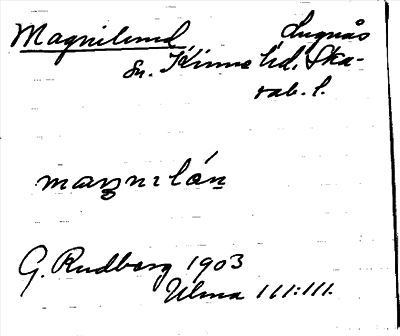 Magnilund Lugnås
sn. Kinne hd. Ska-
rab. l.
G. Rudberg 1903
Ulma 111:111.